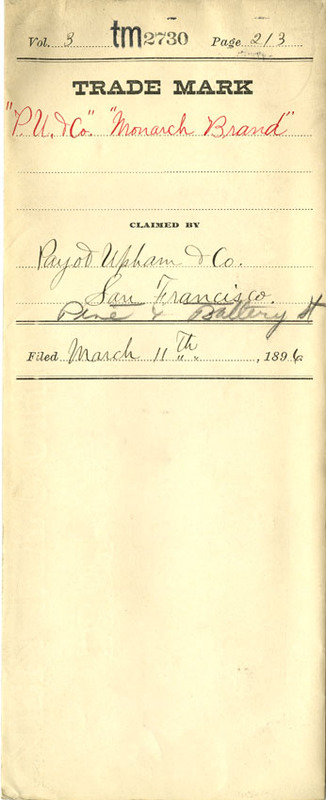 Vol. 3 tm 2730 Page 213
TRADE MARK
"P. U. & Co." "Monarch Brand"
CLAIMED BY
Payot Upham & Co.
San Francisco.
Pine & Battery St
Filed March 11th, 1896